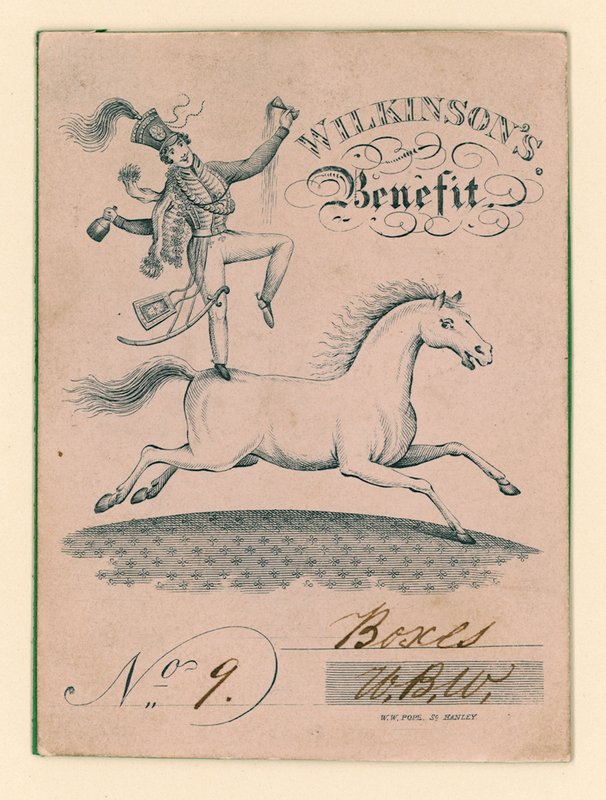 WILKINSON'S
Benefit.
Boxes
No 9.
W.B.W.
W. W. POPE. Sc HANLEY.